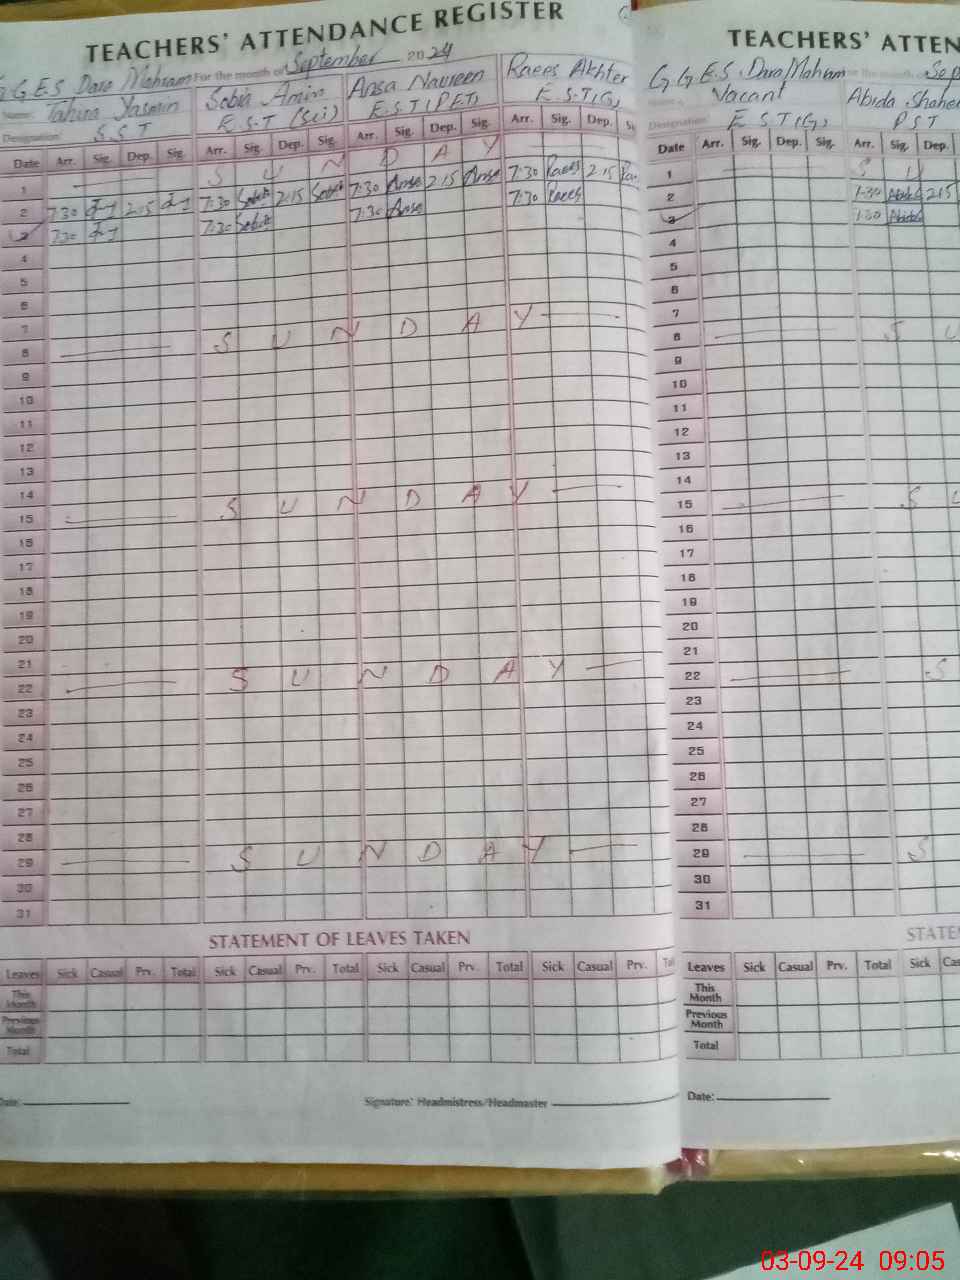 TEACHERS' ATTENDANCE REGISTER
G.G.E.S Dara Mahram For the month of September 2024
Name: Tahira Yasmin Sobia Amin Ansa Naureen Raees Akhter
Designation: S.S.T E.S.T (Sci) E.S.T (PET) E.S.T(G)
Date Arr. Sig. Dep. Sig. Arr. Sig. Dep. Sig. Arr. Sig. Dep. Sig. Arr. Sig. Dep. Si
1 S U N D A Y
2 7:30 2:15 7:30 Sobia 2:15 Sobia 7:30 Ansa 2:15 Ansa 7:30 Raees 2:15 Rae
3 7:30 7:30 Sobia 7:30 Ansa 7:30 Raees
4
5
6
7
8 S U N D A Y
9
10
11
12
13
14
15 S U N D A Y
16
17
18
19
20
21
22 S U N D A Y
23
24
25
26
27
28
29 S U N D A Y
30
31
STATEMENT OF LEAVES TAKEN
Leaves Sick Casual Prv. Total Sick Casual Prv. Total Sick Casual Prv. Total Sick Casual Prv. Tot
This Month
Previous Month
Total
Date: Signature: Headmistress/Headmaster
TEACHERS' ATTEN
G.G.E.S Dara Mahram For the month of Sep
Name: Vacant Abida Shahe
Designation: E.S.T(G) PST
Date Arr. Sig. Dep. Sig. Arr. Sig. Dep.
1 S U
2 7:30 Abida 2:15
3 7:30 Abida
4
5
6
7
8 S U
9
10
11
12
13
14
15 S U
16
17
18
19
20
21
22 S
23
24
25
26
27
28
29 S
30
31
STATE
Leaves Sick Casual Prv. Total Sick Cas
This Month
Previous Month
Total
Date:
03-09-24 09:05